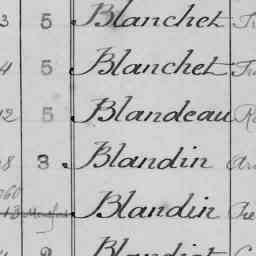 3 5 Blanchet
4 5 Blanchet
12 5 Blandeau
8 3. Blandin
Blandin